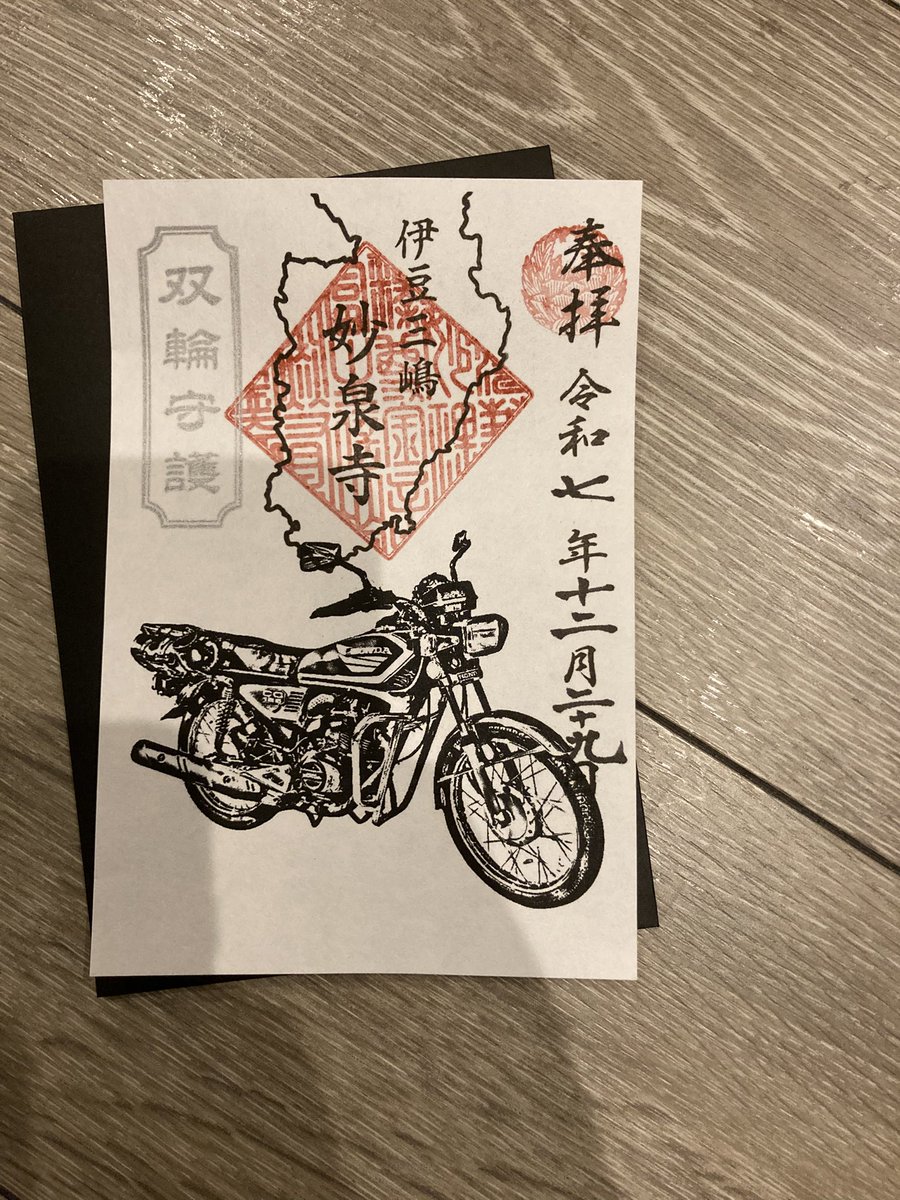 奉拝
令和七年十二月二十九日
伊豆三嶋
妙泉寺
双輪守護
HONDA